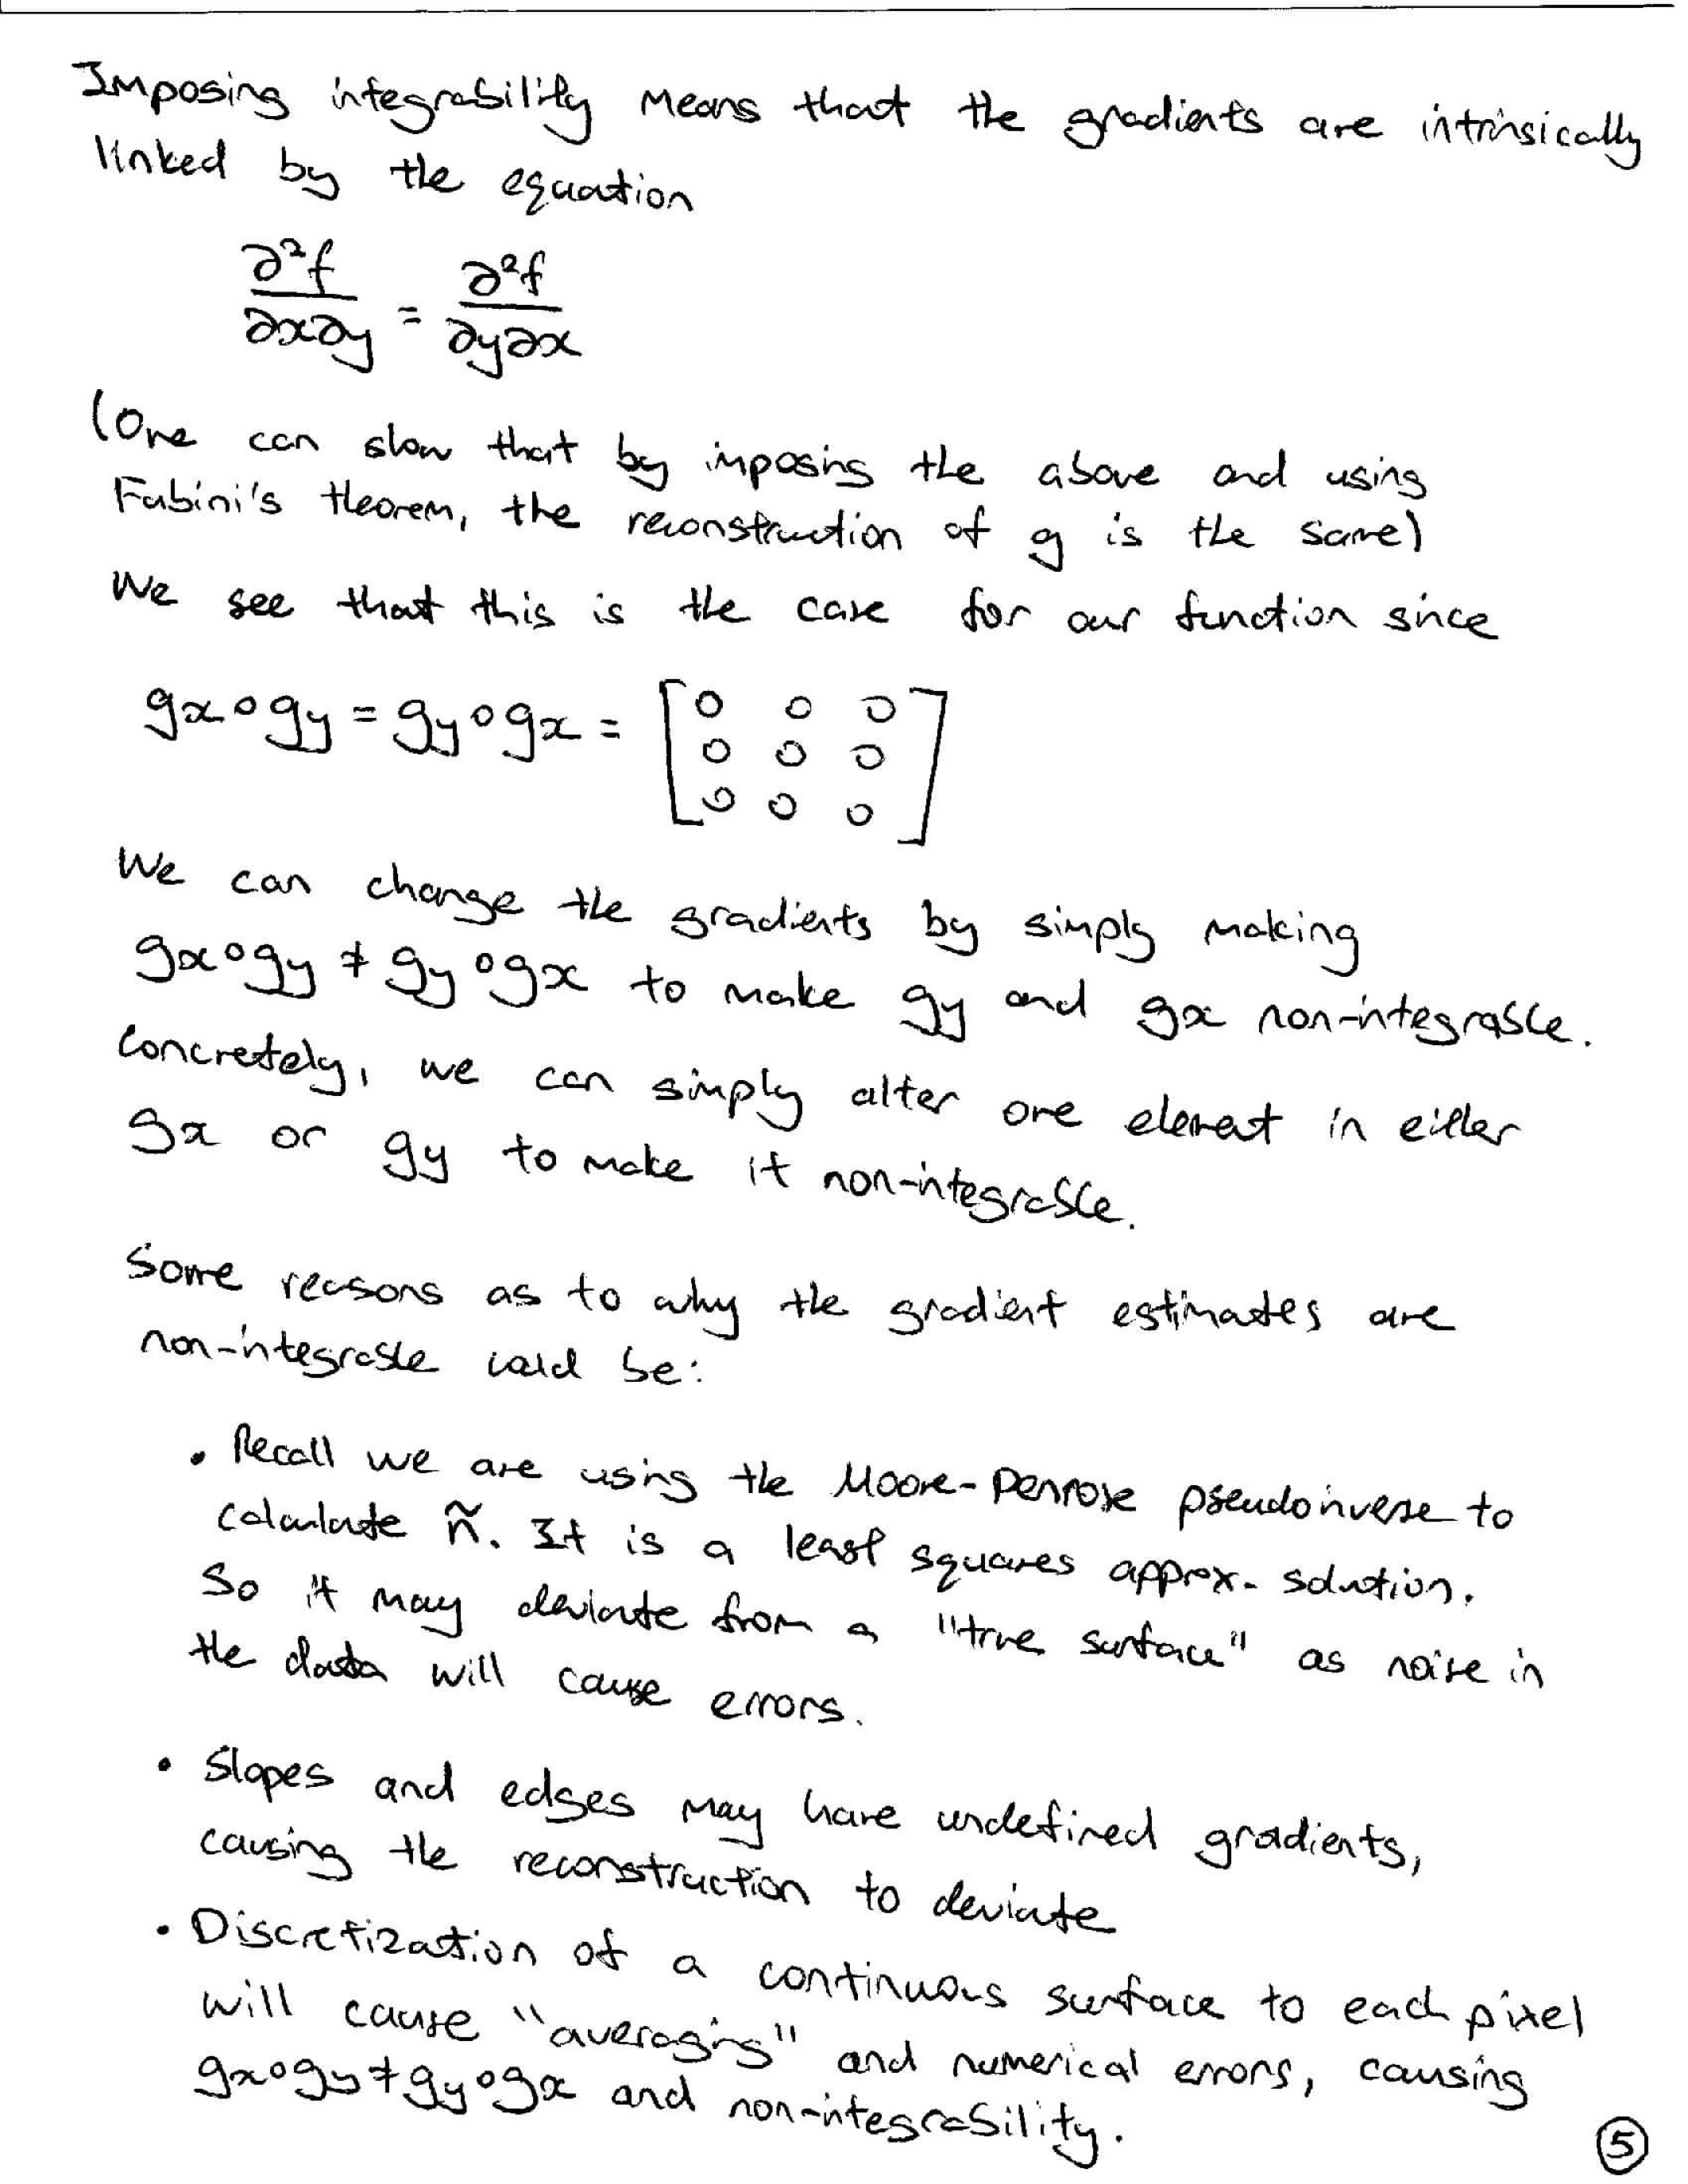 Imposing integrability means that the gradients are intrinsically
linked by the equation
∂²f/∂x∂y = ∂²f/∂y∂x
(One can show that by imposing the above and using
Fubini's theorem, the reconstruction of g is the same)
We see that this is the case for our function since
gx∘gy = gy∘gx = [0 0 0
0 0 0
0 0 0]
We can change the gradients by simply making
gx∘gy ≠ gy∘gx to make gy and gx non-integrable.
Concretely, we can simply alter one element in either
gx or gy to make it non-integrable.
Some reasons as to why the gradient estimates are
non-integrable could be:
• Recall we are using the Moore-Penrose pseudoinverse to
calculate ñ. It is a least squares approx. solution.
So it may deviate from a "true surface" as noise in
the data will cause errors.
• Slopes and edges may have undefined gradients,
causing the reconstruction to deviate
• Discretization of a continuous surface to each pixel
will cause "averaging" and numerical errors, causing
gx∘gy ≠ gy∘gx and non-integrability.
5